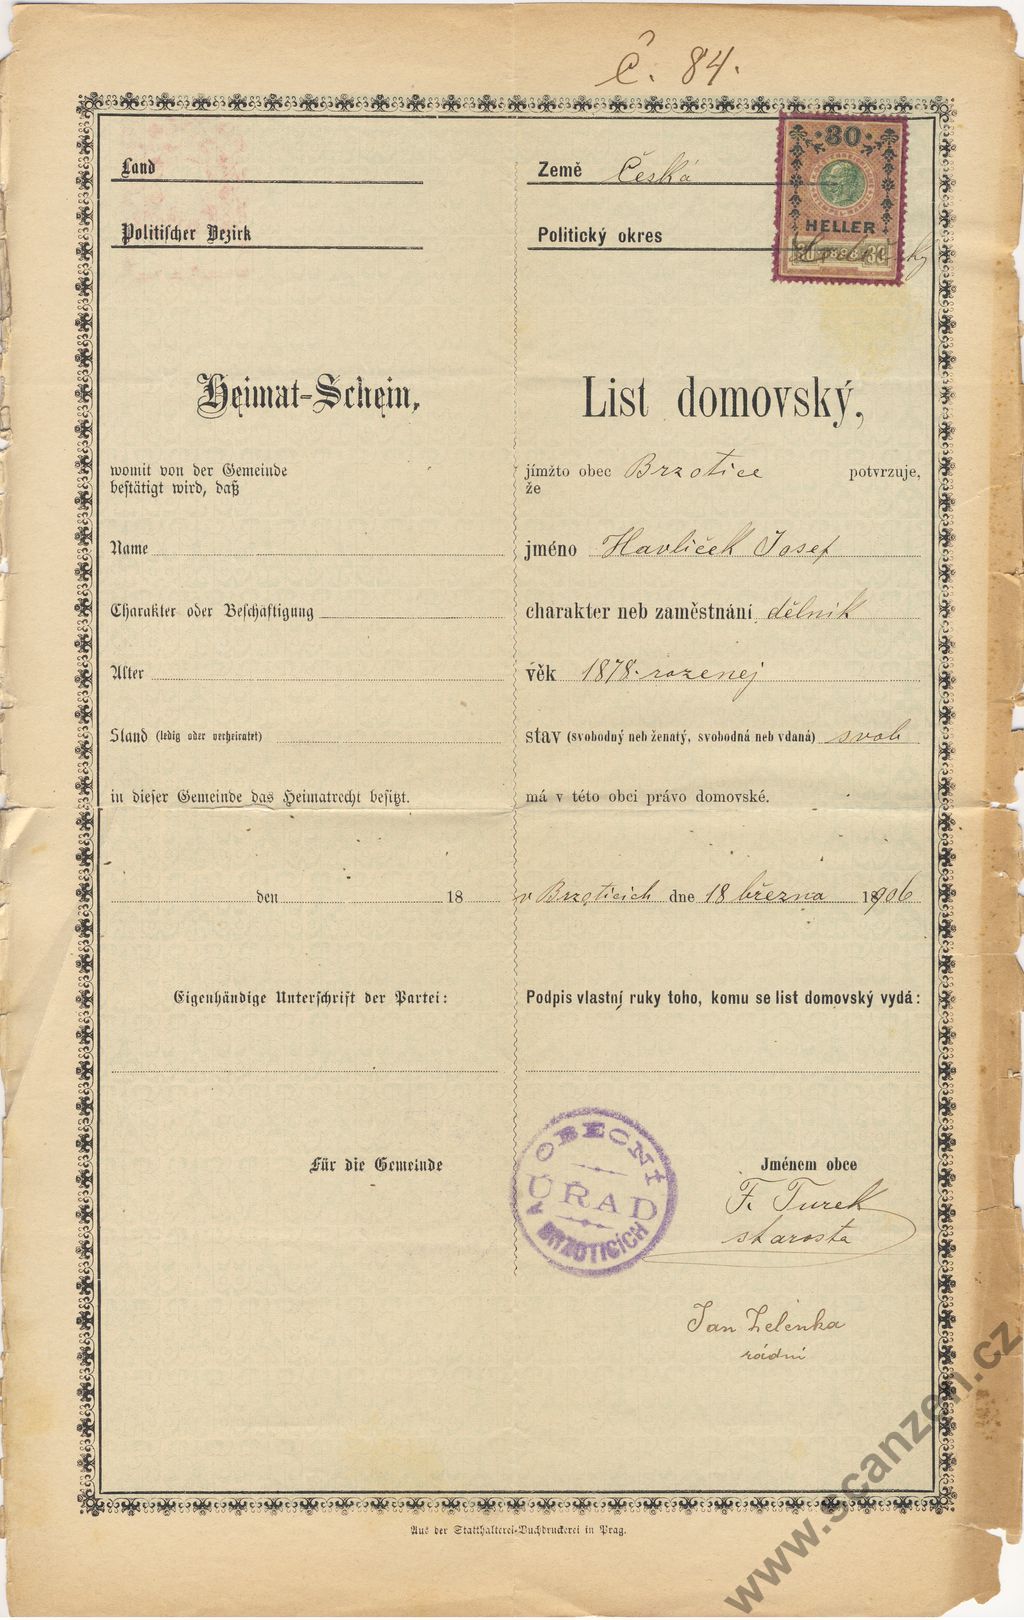 Č. 84.
Land
Politischer Bezirk
Heimat-Schein,
womit von der Gemeinde
bestätigt wird, daß
Name
Charakter oder Beschäftigung
Alter
Stand (ledig oder verheiratet)
in dieser Gemeinde das Heimatrecht besitzt.
den 18
Eigenhändige Unterschrift der Partei:
Für die Gemeinde
Země Česká
Politický okres
30
HELLER
30 30
List domovský,
jímžto obec Brzotice potvrzuje,
že
jméno Havlíček Josef
charakter neb zaměstnání dělník
věk 1878. rozenej
stav (svobodný neb ženatý, svobodná neb vdaná) svob
má v této obci právo domovské.
v Brzoticich dne 18 března 1906
Podpis vlastní ruky toho, komu se list domovský vydá:
OBECNÍ
ÚŘAD
V BRZOTICÍCH
Jménem obce
F. Turek
starosta
Jan Zelenka
rádní
Aus der Statthalterei-Buchdruckerei in Prag.
www.scanzen.cz